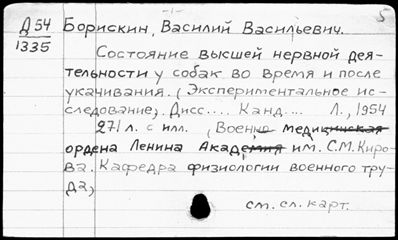 -1-
5
Д54 Борискин, Василий Васильевич.
1335
Состояние высшей нервной дея-
тельности у собак во время и после
укачивания. (Экспериментальное ис-
следование). Дисс.... Канд.... Л., 1954
271 л. с илл. (Военно медицинская
ордена Ленина Академия им. С.М. Киро-
ва. Кафедра физиологии военного тру-
да)
см. сл. карт.